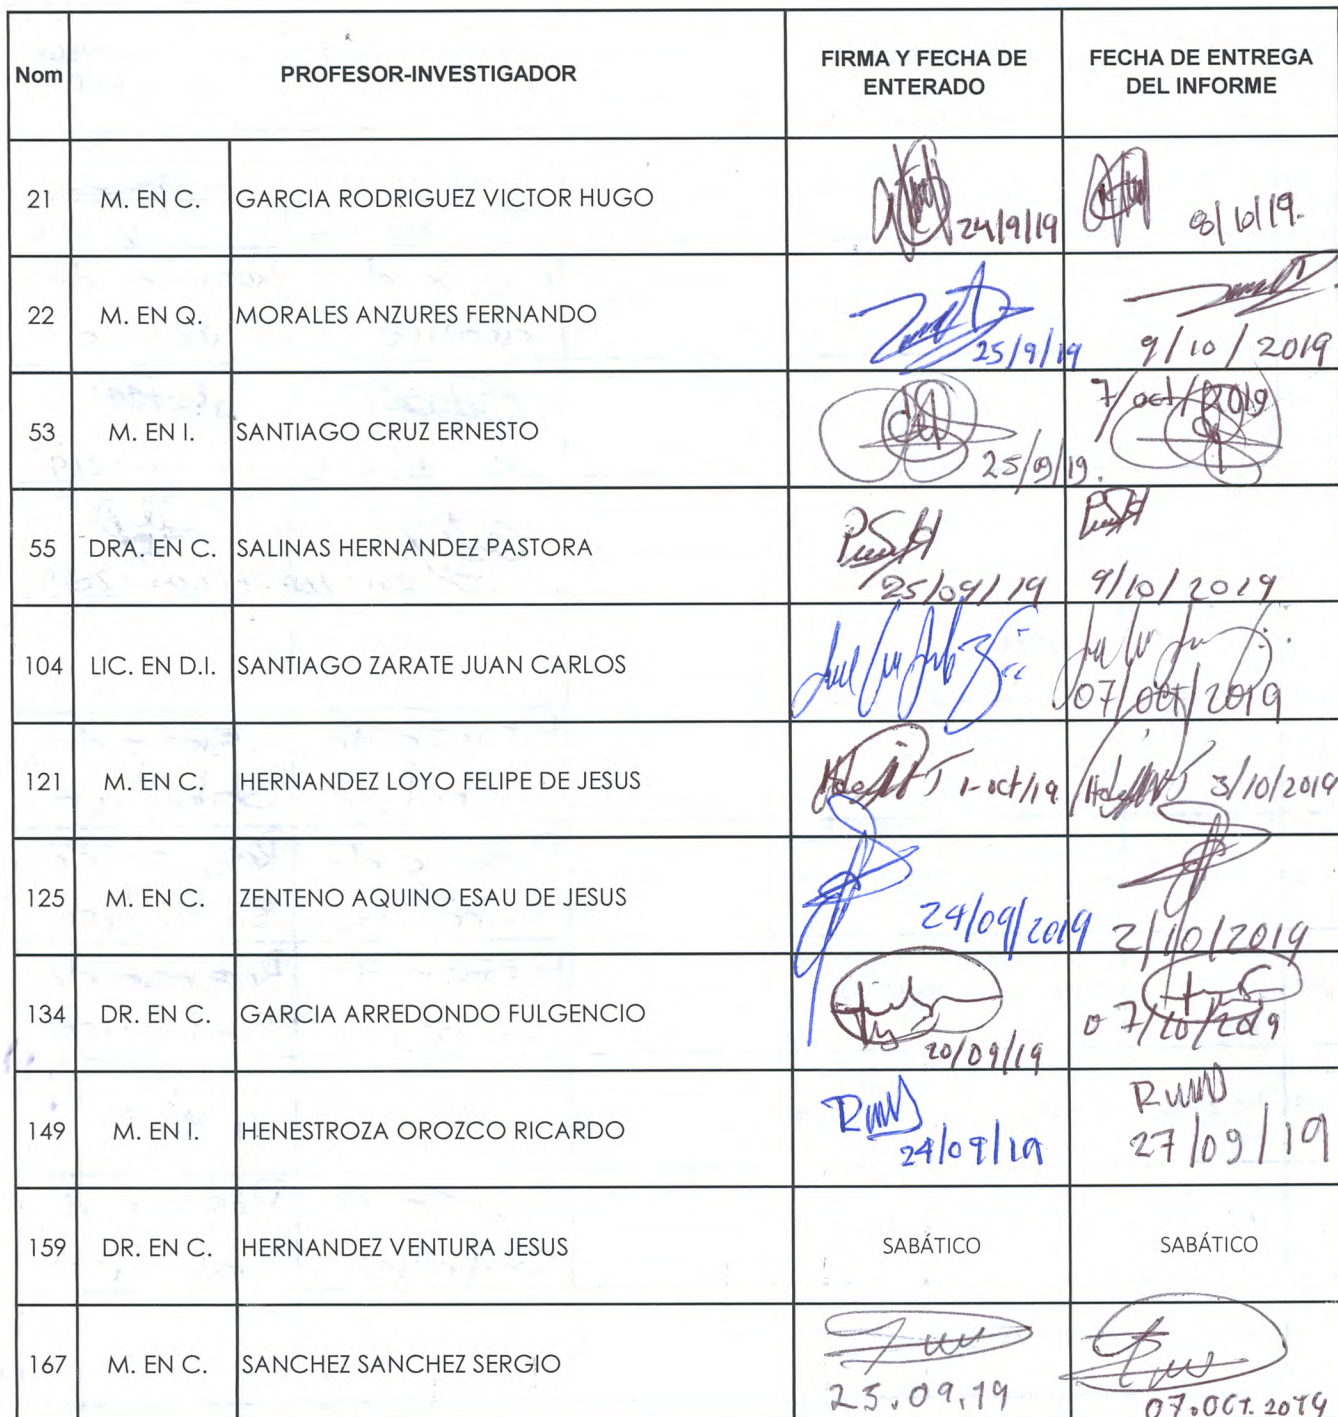 Nom PROFESOR-INVESTIGADOR FIRMA Y FECHA DE ENTERADO FECHA DE ENTREGA DEL INFORME
21 M. EN C. GARCIA RODRIGUEZ VICTOR HUGO 24/9/19 8/10/19.
22 M. EN Q. MORALES ANZURES FERNANDO 25/9/19 9/10/2019
53 M. EN I. SANTIAGO CRUZ ERNESTO 25/09/19. 7/oct/2019
55 DRA. EN C. SALINAS HERNANDEZ PASTORA 25/09/19 9/10/2019
104 LIC. EN D.I. SANTIAGO ZARATE JUAN CARLOS 07/oct/2019
121 M. EN C. HERNANDEZ LOYO FELIPE DE JESUS 1-oct/19 3/10/2019
125 M. EN C. ZENTENO AQUINO ESAU DE JESUS 24/09/2019 2/10/2019
134 DR. EN C. GARCIA ARREDONDO FULGENCIO 20/09/19 07/10/2019
149 M. EN I. HENESTROZA OROZCO RICARDO 24/09/19 27/09/19
159 DR. EN C. HERNANDEZ VENTURA JESUS SABÁTICO SABÁTICO
167 M. EN C. SANCHEZ SANCHEZ SERGIO 25.09.19 07.OCT.2019